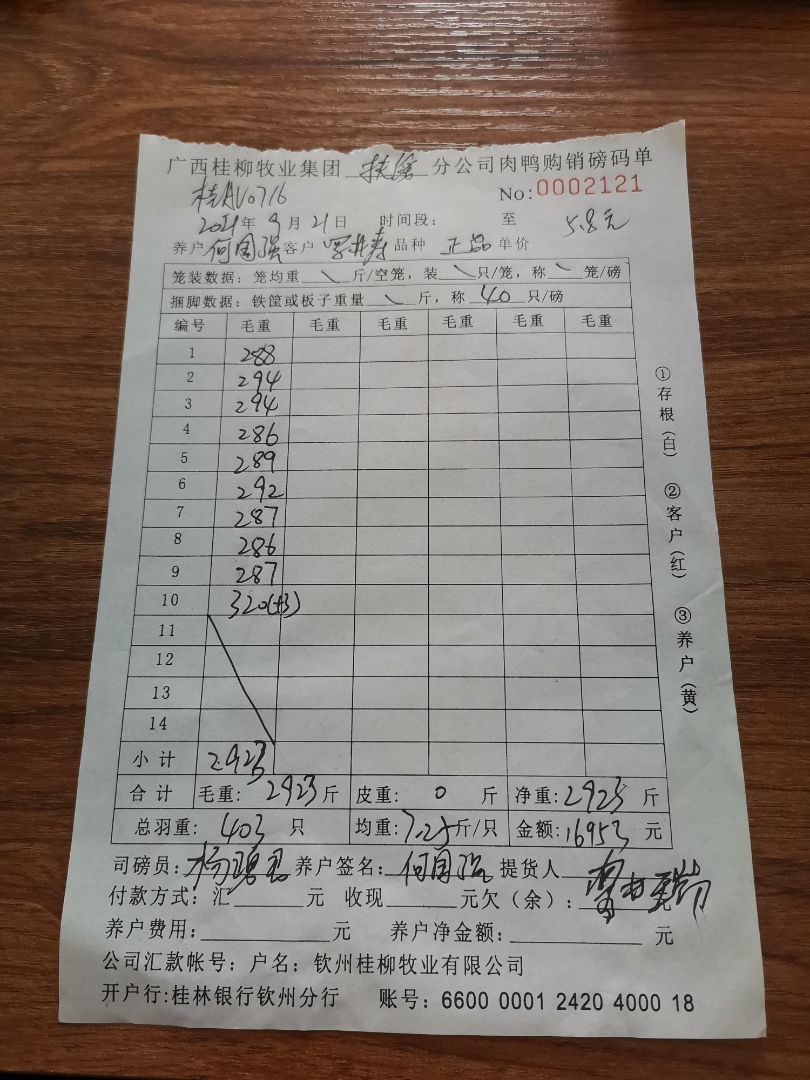 广西桂柳牧业集团 分公司肉鸭购销磅码单
桂AV0716 No:0002121
2021年9月21日 时间段: 至 5.8元
养户 何国强 客户 品种 正品 单价
笼装数据: 笼均重 \ 斤/空笼, 装 \ 只/笼, 称 \ 笼/磅
捆脚数据: 铁筐或板子重量 \ 斤, 称 40 只/磅
编号 毛重 毛重 毛重 毛重 毛重 毛重
1 288
2 294
3 294
4 286
5 289
6 292
7 287
8 286
9 287
10 320(43)
11
12
13
14
小计 2923
合计 毛重: 2923 斤 皮重: 0 斤 净重: 2923 斤
总羽重: 403 只 均重: 7.25 斤/只 金额: 16953 元
司磅员: 养户签名: 何国强 提货人
付款方式: 汇 元 收现 元欠(余): 元
养户费用: 元 养户净金额: 元
公司汇款帐号: 户名: 钦州桂柳牧业有限公司
开户行:桂林银行钦州分行 账号: 6600 0001 2420 4000 18
①存根(白) ②客户(红) ③养户(黄)